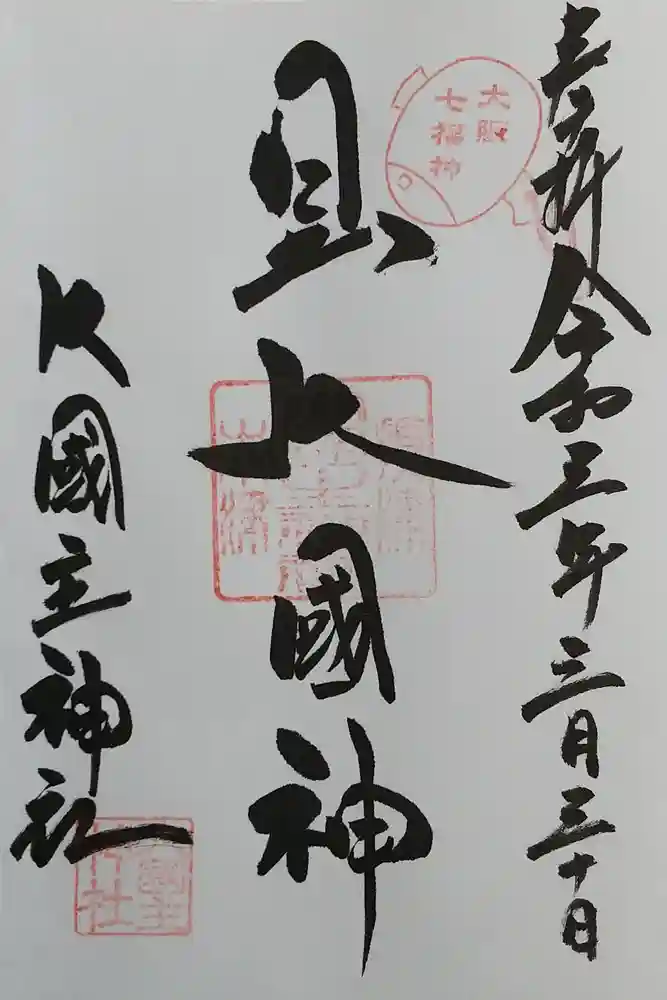 奉拝 令和三年三月三十日
大阪
七福神
日出大國神
大國主神社